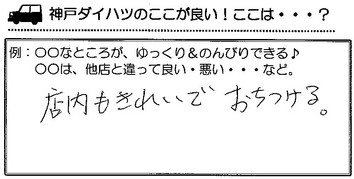 神戸ダイハツのここが良い!ここは・・・?
例:○○なところが、ゆっくり&のんびりできる♪
○○は、他店と違って良い・悪い・・・など。
店内もきれいで おちつける。